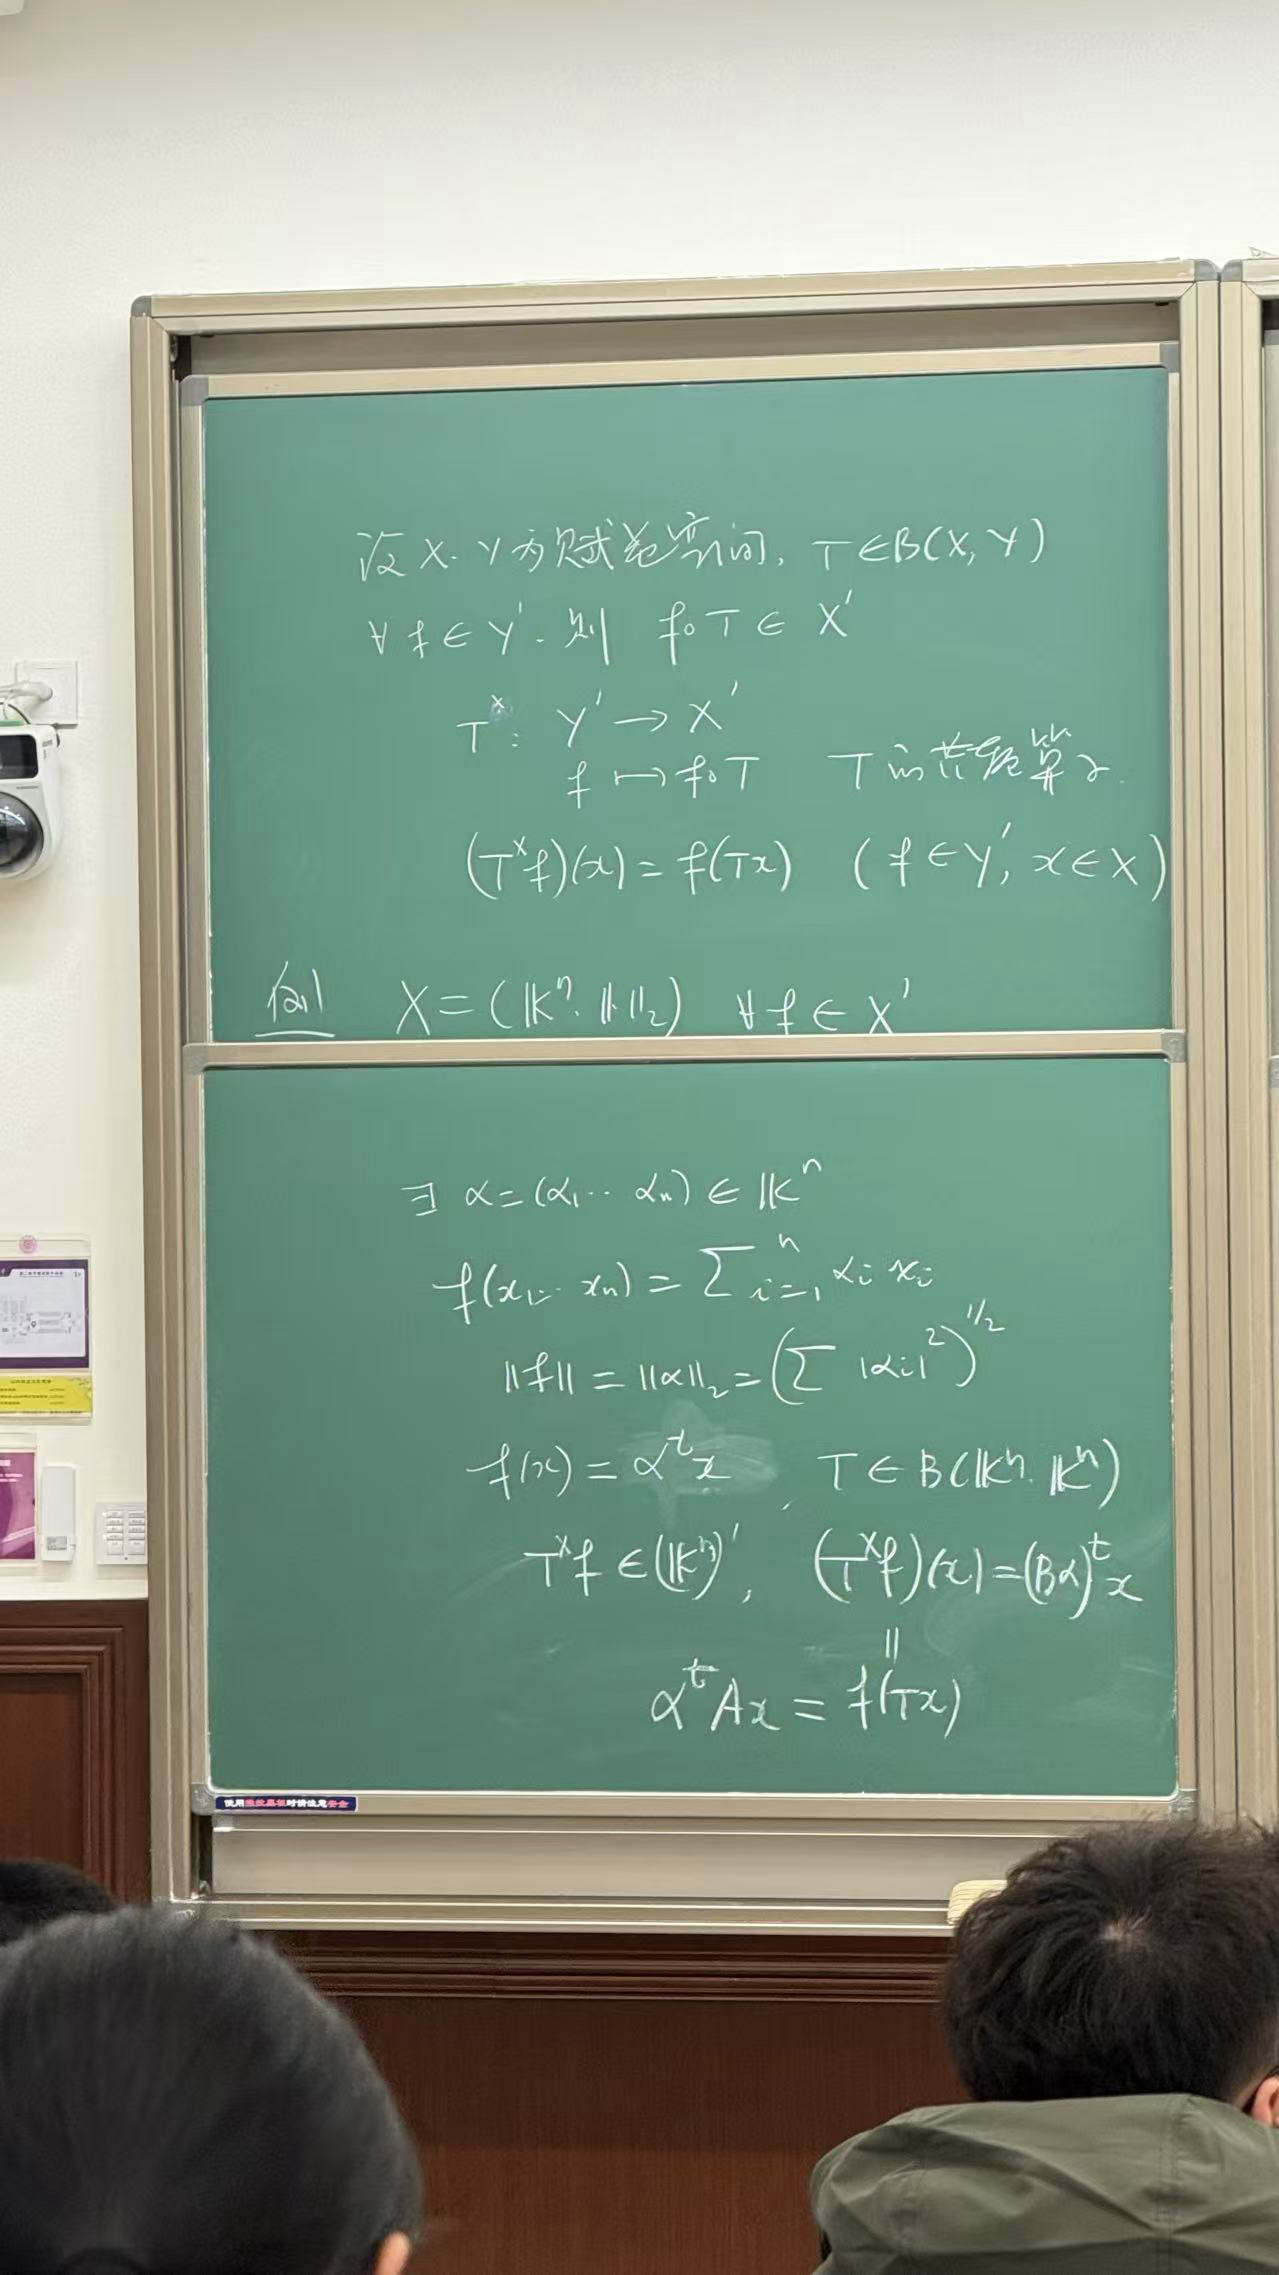 设 X. Y 为赋范空间, T ∈ B(X, Y)
∀ f ∈ Y'. 则 f∘T ∈ X'
T^×: Y' → X'
f ↦ f∘T T的共轭算子.
(T^× f)(x) = f(Tx) (f ∈ Y', x ∈ X)
例1 X = (𝕂^n. ‖·‖_2) ∀ f ∈ X'
∃ α = (α_1 ··· α_n) ∈ 𝕂^n
f(x_1 ··· x_n) = ∑_{i=1}^n α_i x_i
‖f‖ = ‖α‖_2 = (∑ |α_i|^2)^{1/2}
f(x) = α^t x , T ∈ B(𝕂^n. 𝕂^n)
T^× f ∈ (𝕂^n)', (T^× f)(x) = (Bα)^t x
||
α^t A x = f(Tx)
使用 时请注意安全